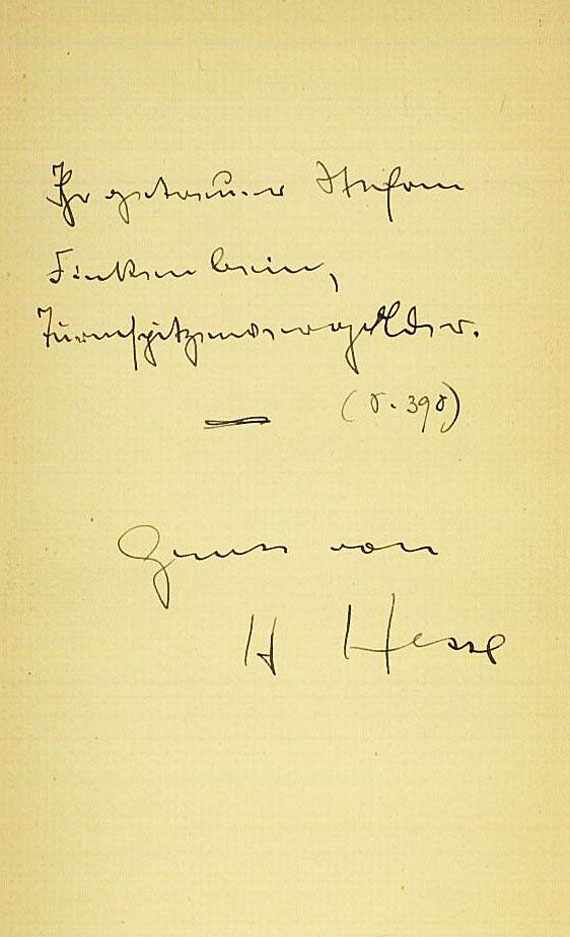 Ihr getreuer Stefan
Finkenbein,
Turmspitzenvergolder.
(S. 398)
Gruss von
H Hesse